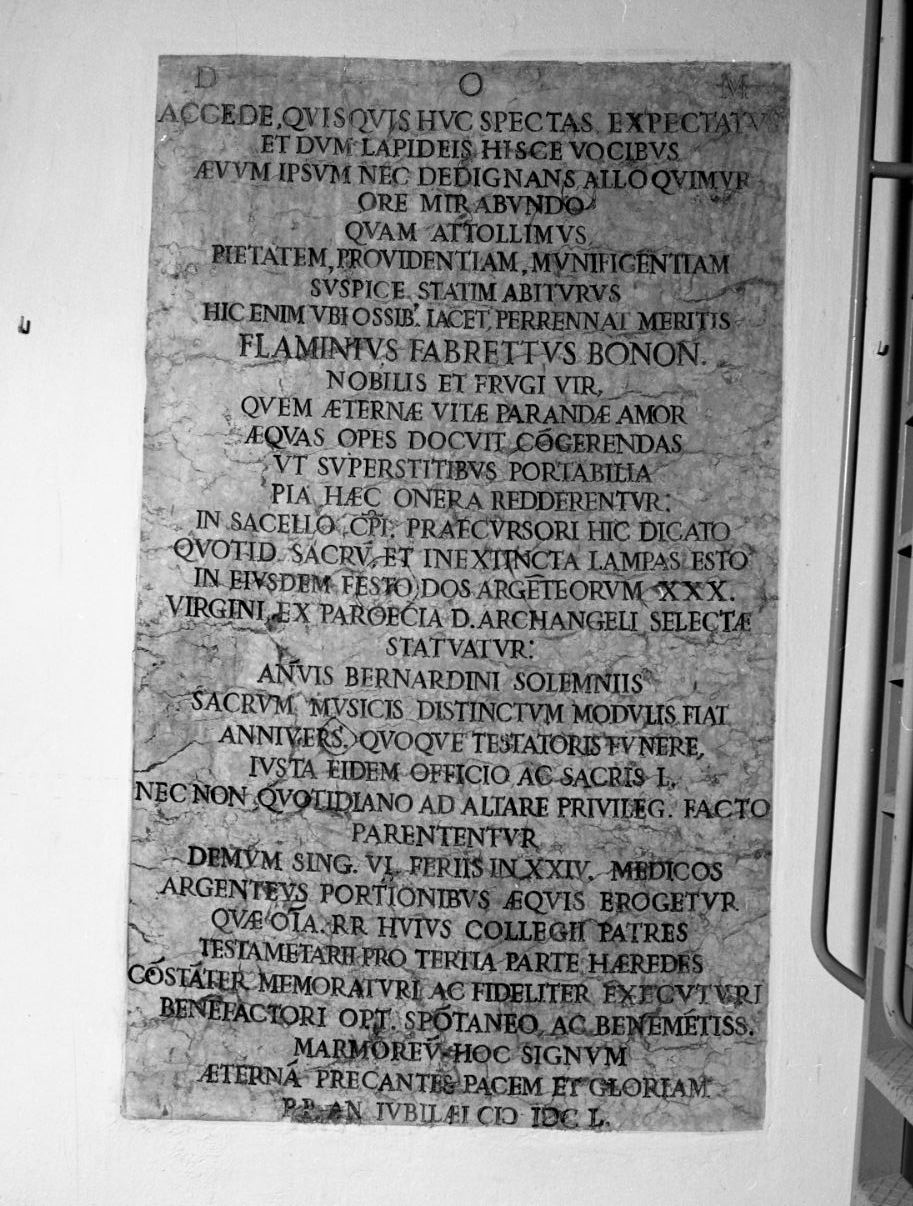 D O M
ACCEDE, QVISQVIS HVC SPECTAS EXPECTATV
ET DVM LAPIDEIS HISCE VOCIBVS
ÆVVM IPSVM NEC DEDIGNANS ALLOQVIMVR
ORE MIRABVNDO
QVAM ATTOLLIMVS
PIETATEM, PROVIDENTIAM, MVNIFICENTIAM
SVSPICE STATIM ABITVRVS
HIC ENIM VBI OSSIB. IACET PERRENNAT MERITIS
FLAMINIVS FABRETTVS BONON.
NOBILIS ET FRVGI VIR,
QVEM ÆTERNÆ VITÆ PARANDÆ AMOR
ÆQVAS OPES DOCVIT CŌGERENDAS
VT SVPERSTITIBVS PORTABILIA
PIA HÆC ONERA REDDERENTVR:
IN SACELLO CP̄I. PRAECVRSORI HIC DICATO
QVOTID. SACRV̄, ET INEXTINCTA LAMPAS ESTO
IN EIVSDEM FESTO DOS ARGĒTEORVM XXX.
VIRGINI, EX PAROECIA D. ARCHANGELI, SELECTÆ
STATVATVR:
AN̄VIS BERNARDINI SOLEMNIIS
SACRVM MVSICIS DISTINCTVM MODVLIS FIAT
ANNIVERS. QVOQVE TESTATORIS FVNERE,
IVSTA EIDEM OFFICIO AC SACRIS L.
NEC NON QVOTIDIANO AD ALTARE PRIVILEG. FACTO
PARENTENTVR
DEMVM SING. VI. FERIIS IN XXIV. MEDICOS
ARGENTEVS PORTIONIBVS ÆQVIS EROGETVR
QVÆ OĪA. RR HVIVS COLLEGII PATRES
TESTAMĒTARII PRO TERTIA PARTE HÆREDES
CŌSTĀTER MEMORATVRI AC FIDELITER EXECVTVRI
BENEFACTORI OPT. SPŌTANEO AC BENEMĒTISS.
MARMOREV̄ HOC SIGNVM
ÆTERNĀ PRECANTES PACEM ET GLORIAM
P.P. AN IVBILÆI CIↃ IDC L.